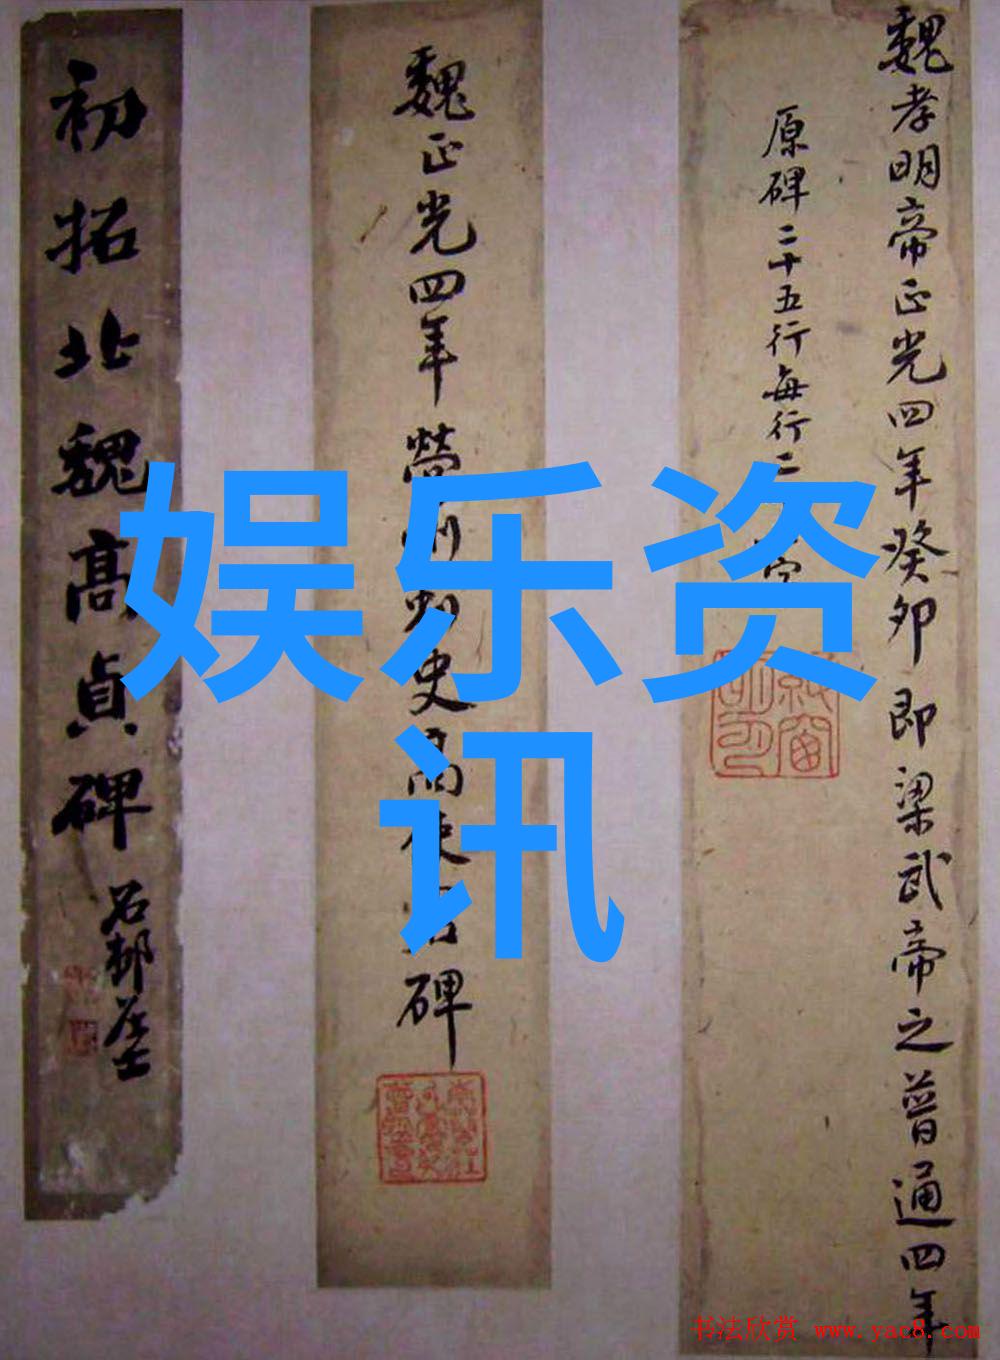 魏孝明帝正光四年癸卯即梁武帝之普通四年
原碑二十五行每行二字
魏正光四年營州刺史高使君碑
初拓北魏高貞碑
石邨居士
娱乐资
讯
书法欣赏 www.yac8.com